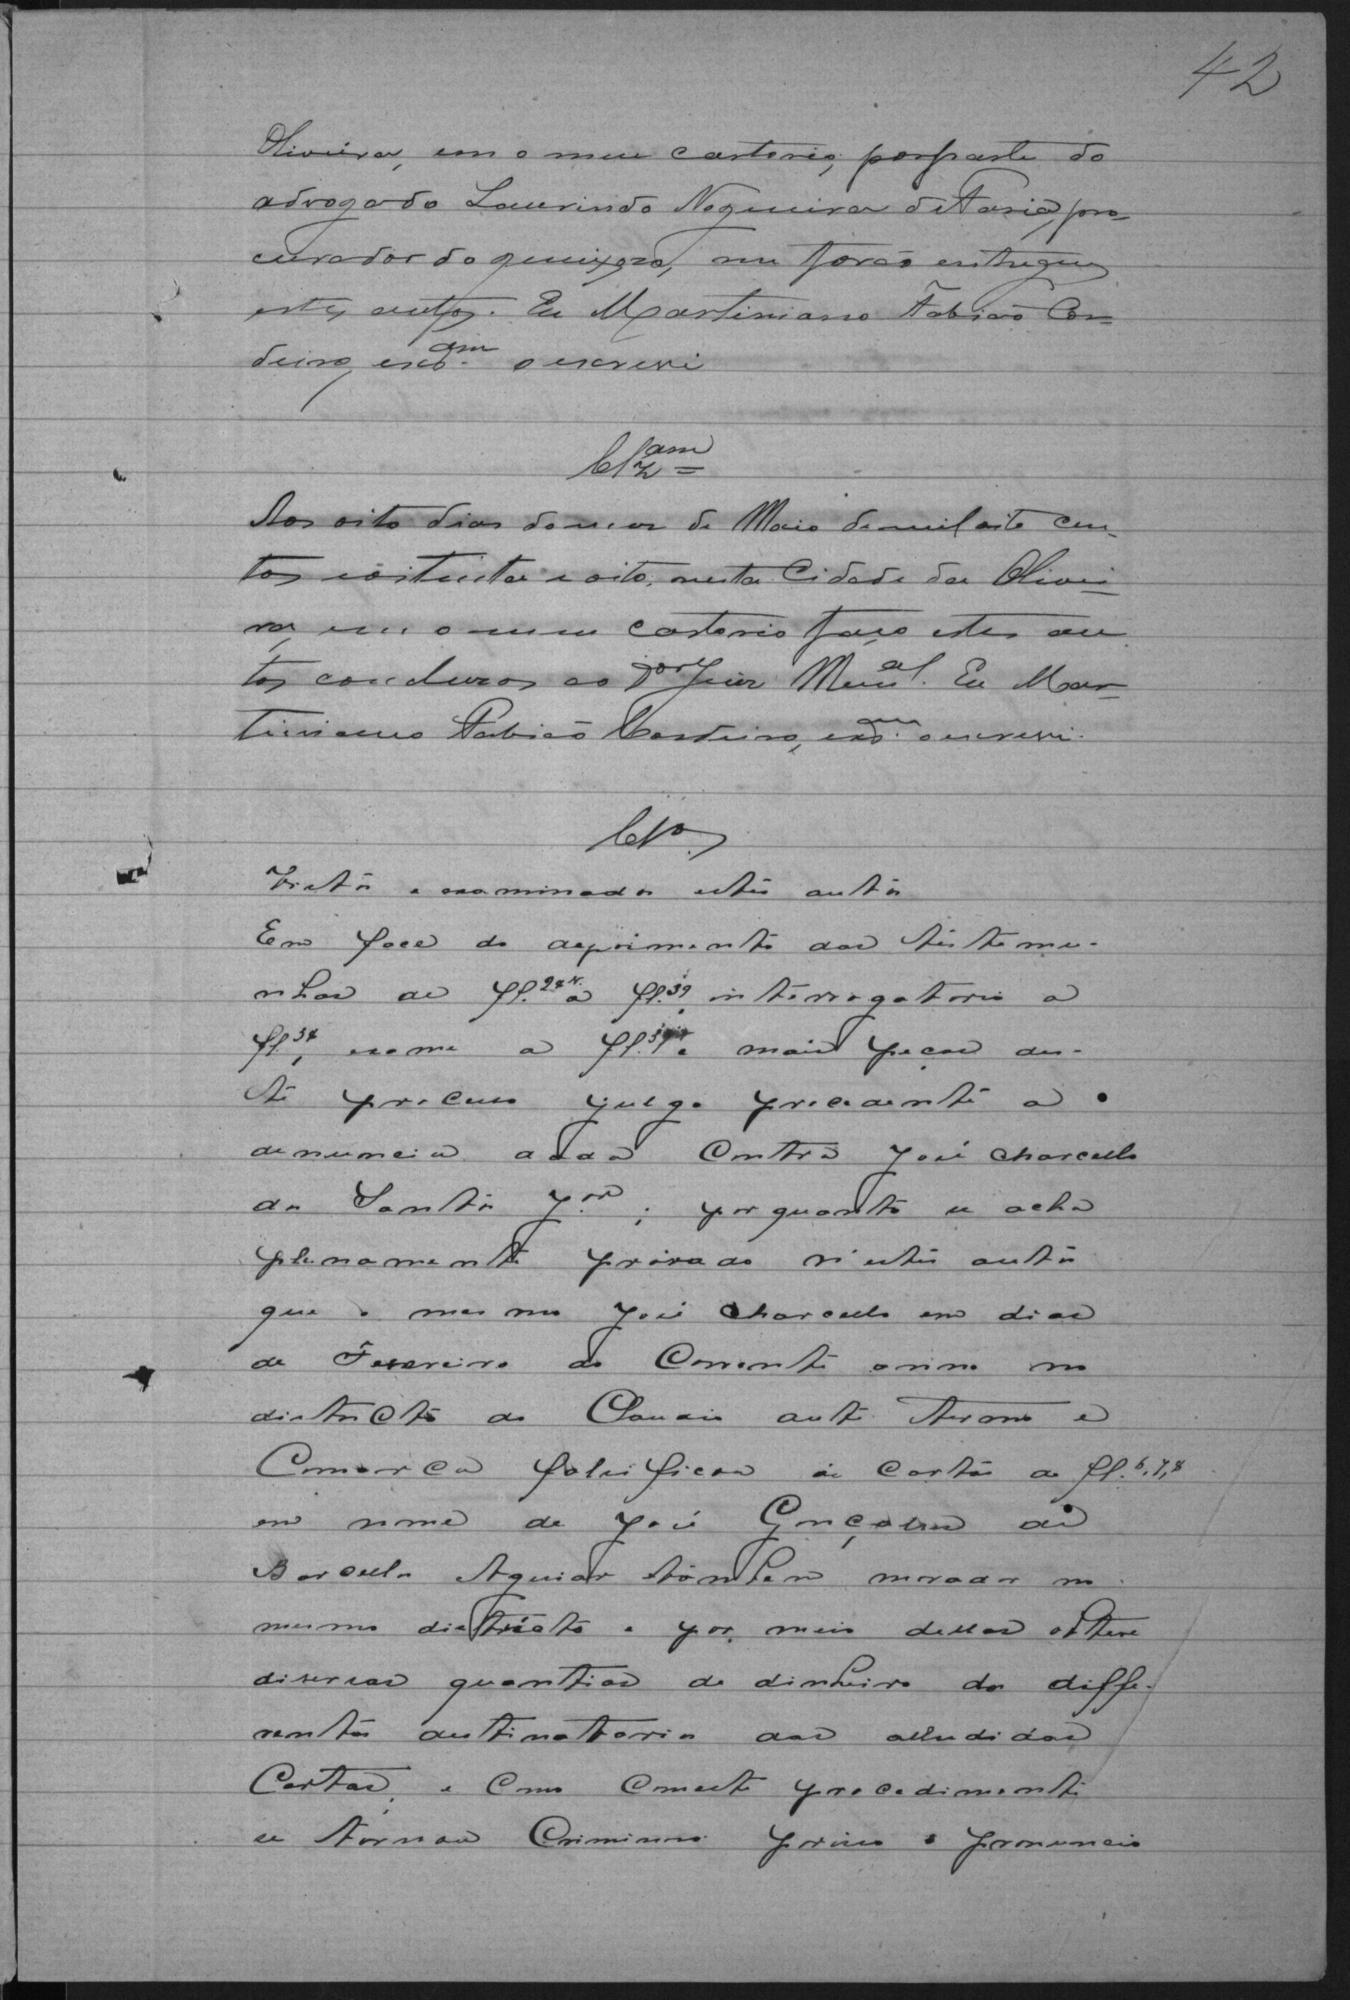 42
Oliveira, em o meu cartorio, por parte do
advogado Laurindo Nogueira de Faria, pro-
curador do queixozo, me forão entregues
estes autos. Eu Martiniano Fabião Cor-
deiro, escam o escrevi
Clzam =
Aos oito dias do mez de Maio de mil oito cen-
tos e oitenta e oito, nesta Cidade da Olivei-
ra, em o meu cartorio faço estes au
tos concluzos ao Dor Juiz Mual. Eu Mar-
tiniano Fabião Cordeiro, escam o escrevi.
Clos
Vistos e examinados estes autos
Em face do depoimento das testemu-
nhas de fl. 24v. a fl. 39, interrogatorio a
fl. 34, exame a fl. e mais peças des-
te processo julgo procedente a
denuncia dada contra José Marcello
dos Santos Jor; porquanto se acha
plenamente provado n'estes autos
que o mesmo José Marcello em dias
de Fevereiro do corrente anno no
districto do Claudio deste Termo e
Comarca falsificou as cartas a fl. 6, 7, 8
em nome de José Gonçalves de
Barcellos Aguiar tambem morador no
mesmo districto e por meio dellas obteve
diversas quantias de dinheiro dos diffe-
rentes destinatarios das alludidas
Cartas, e como com este procedimento
se tornou Criminoso pronuncio